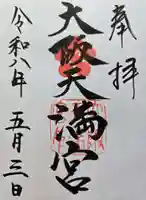 奉拝
大阪天満宮
令和八年五月三日